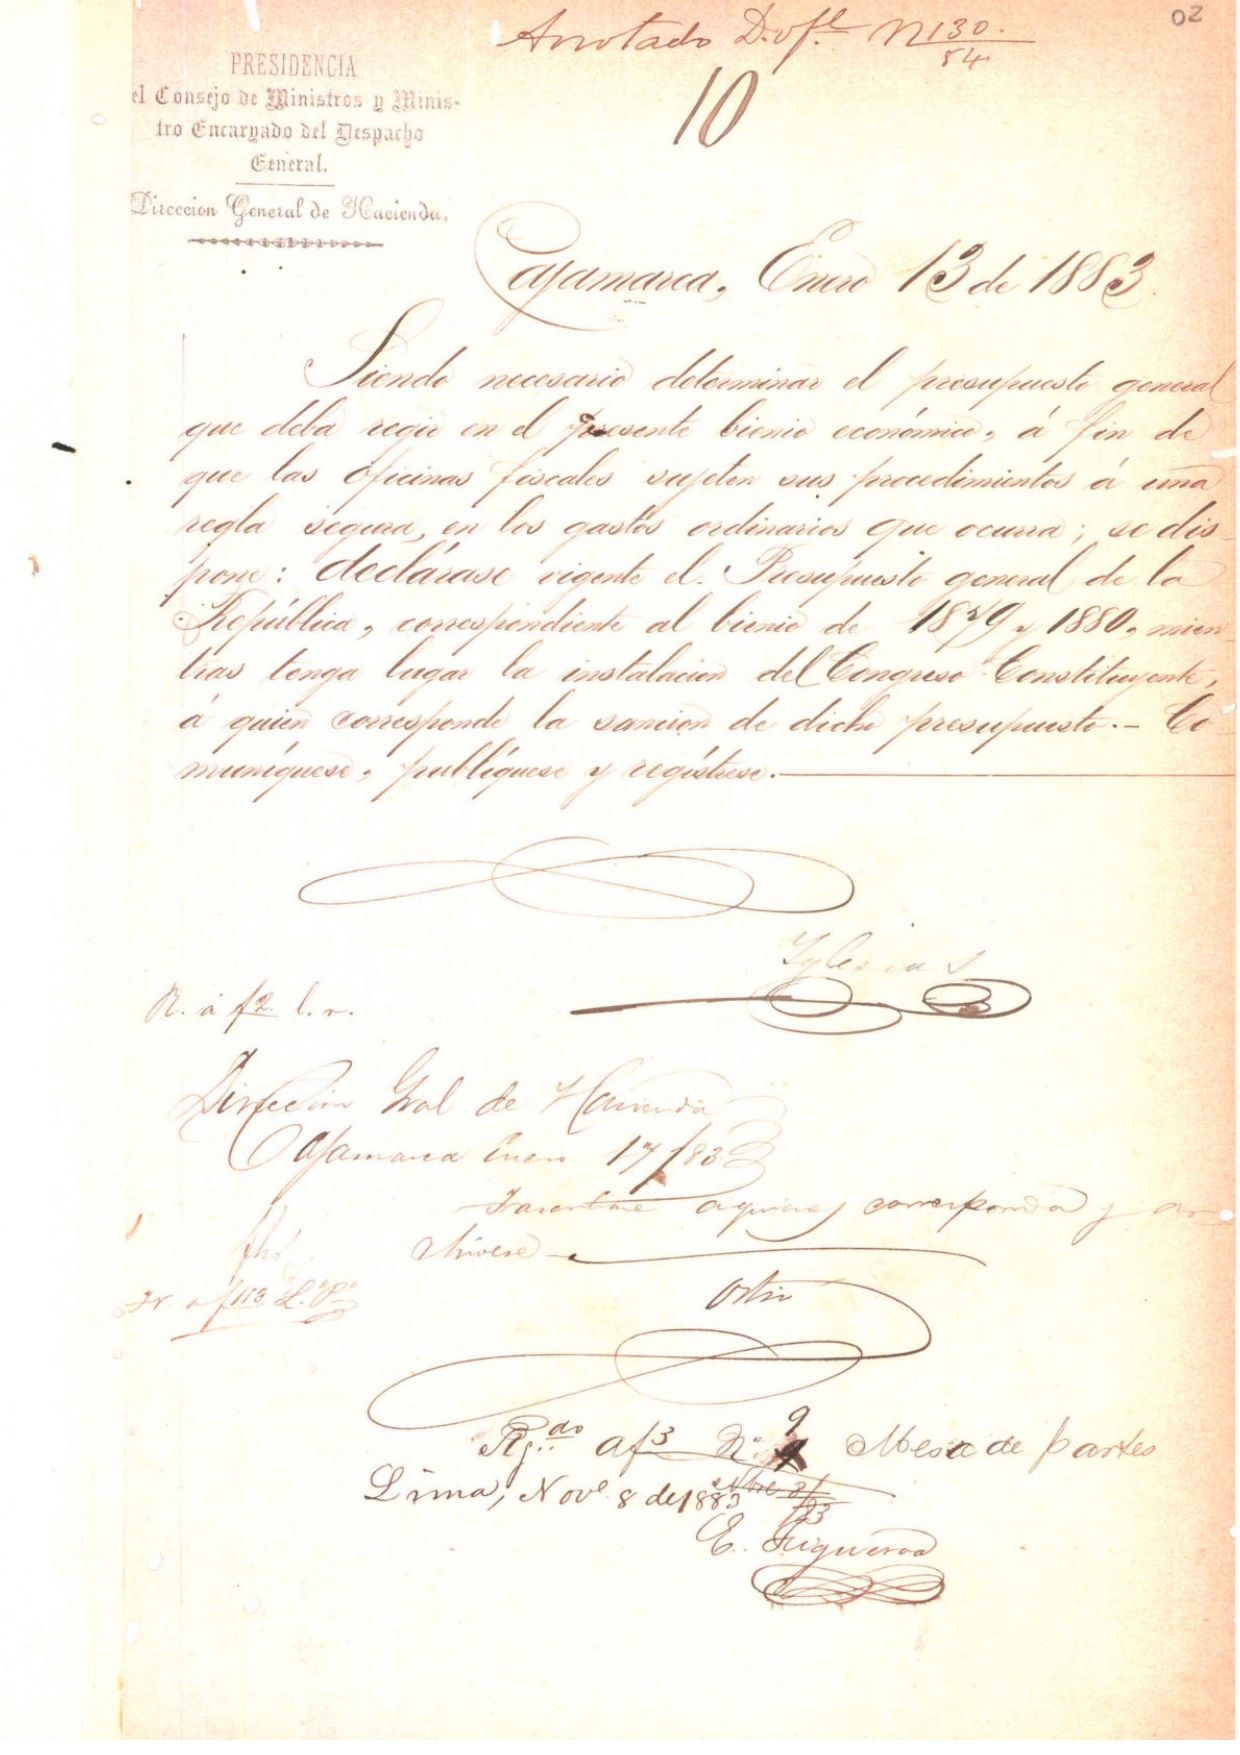 02
Anotado D. ofl. N 130.
54.
10
PRESIDENCIA
el Consejo de Ministros y Minis-
tro Encargado del Despacho
General.
Direccion General de Hacienda.
Cajamarca, Enero 13 de 1883.
Siendo necesario determinar el presupuesto general
que deba regir en el presente bienio económico, á fin de
que las oficinas fiscales sujeten sus procedimientos á una
regla segura, en los gastos ordinarios que ocurra; se dis-
pone: declárase vigente el Presupuesto general de la
República, correspondiente al bienio de 1879 y 1880, mien
tras tenga lugar la instalacion del Congreso Constituyente,
á quien corresponde la sancion de dicho presupuesto.- Co-
muníquese, publíquese y regístrese.
Iglesias
R. á f2. l. r.
Direccion Gral de Hacienda
Cajamarca Enero 17/83
aquienes corresponda y ar
chivese
af 113 L. P.
Rjdo af3 No. 9 Mesa de partes
Lima, Nove. 8 de 1883
E. Figueroa